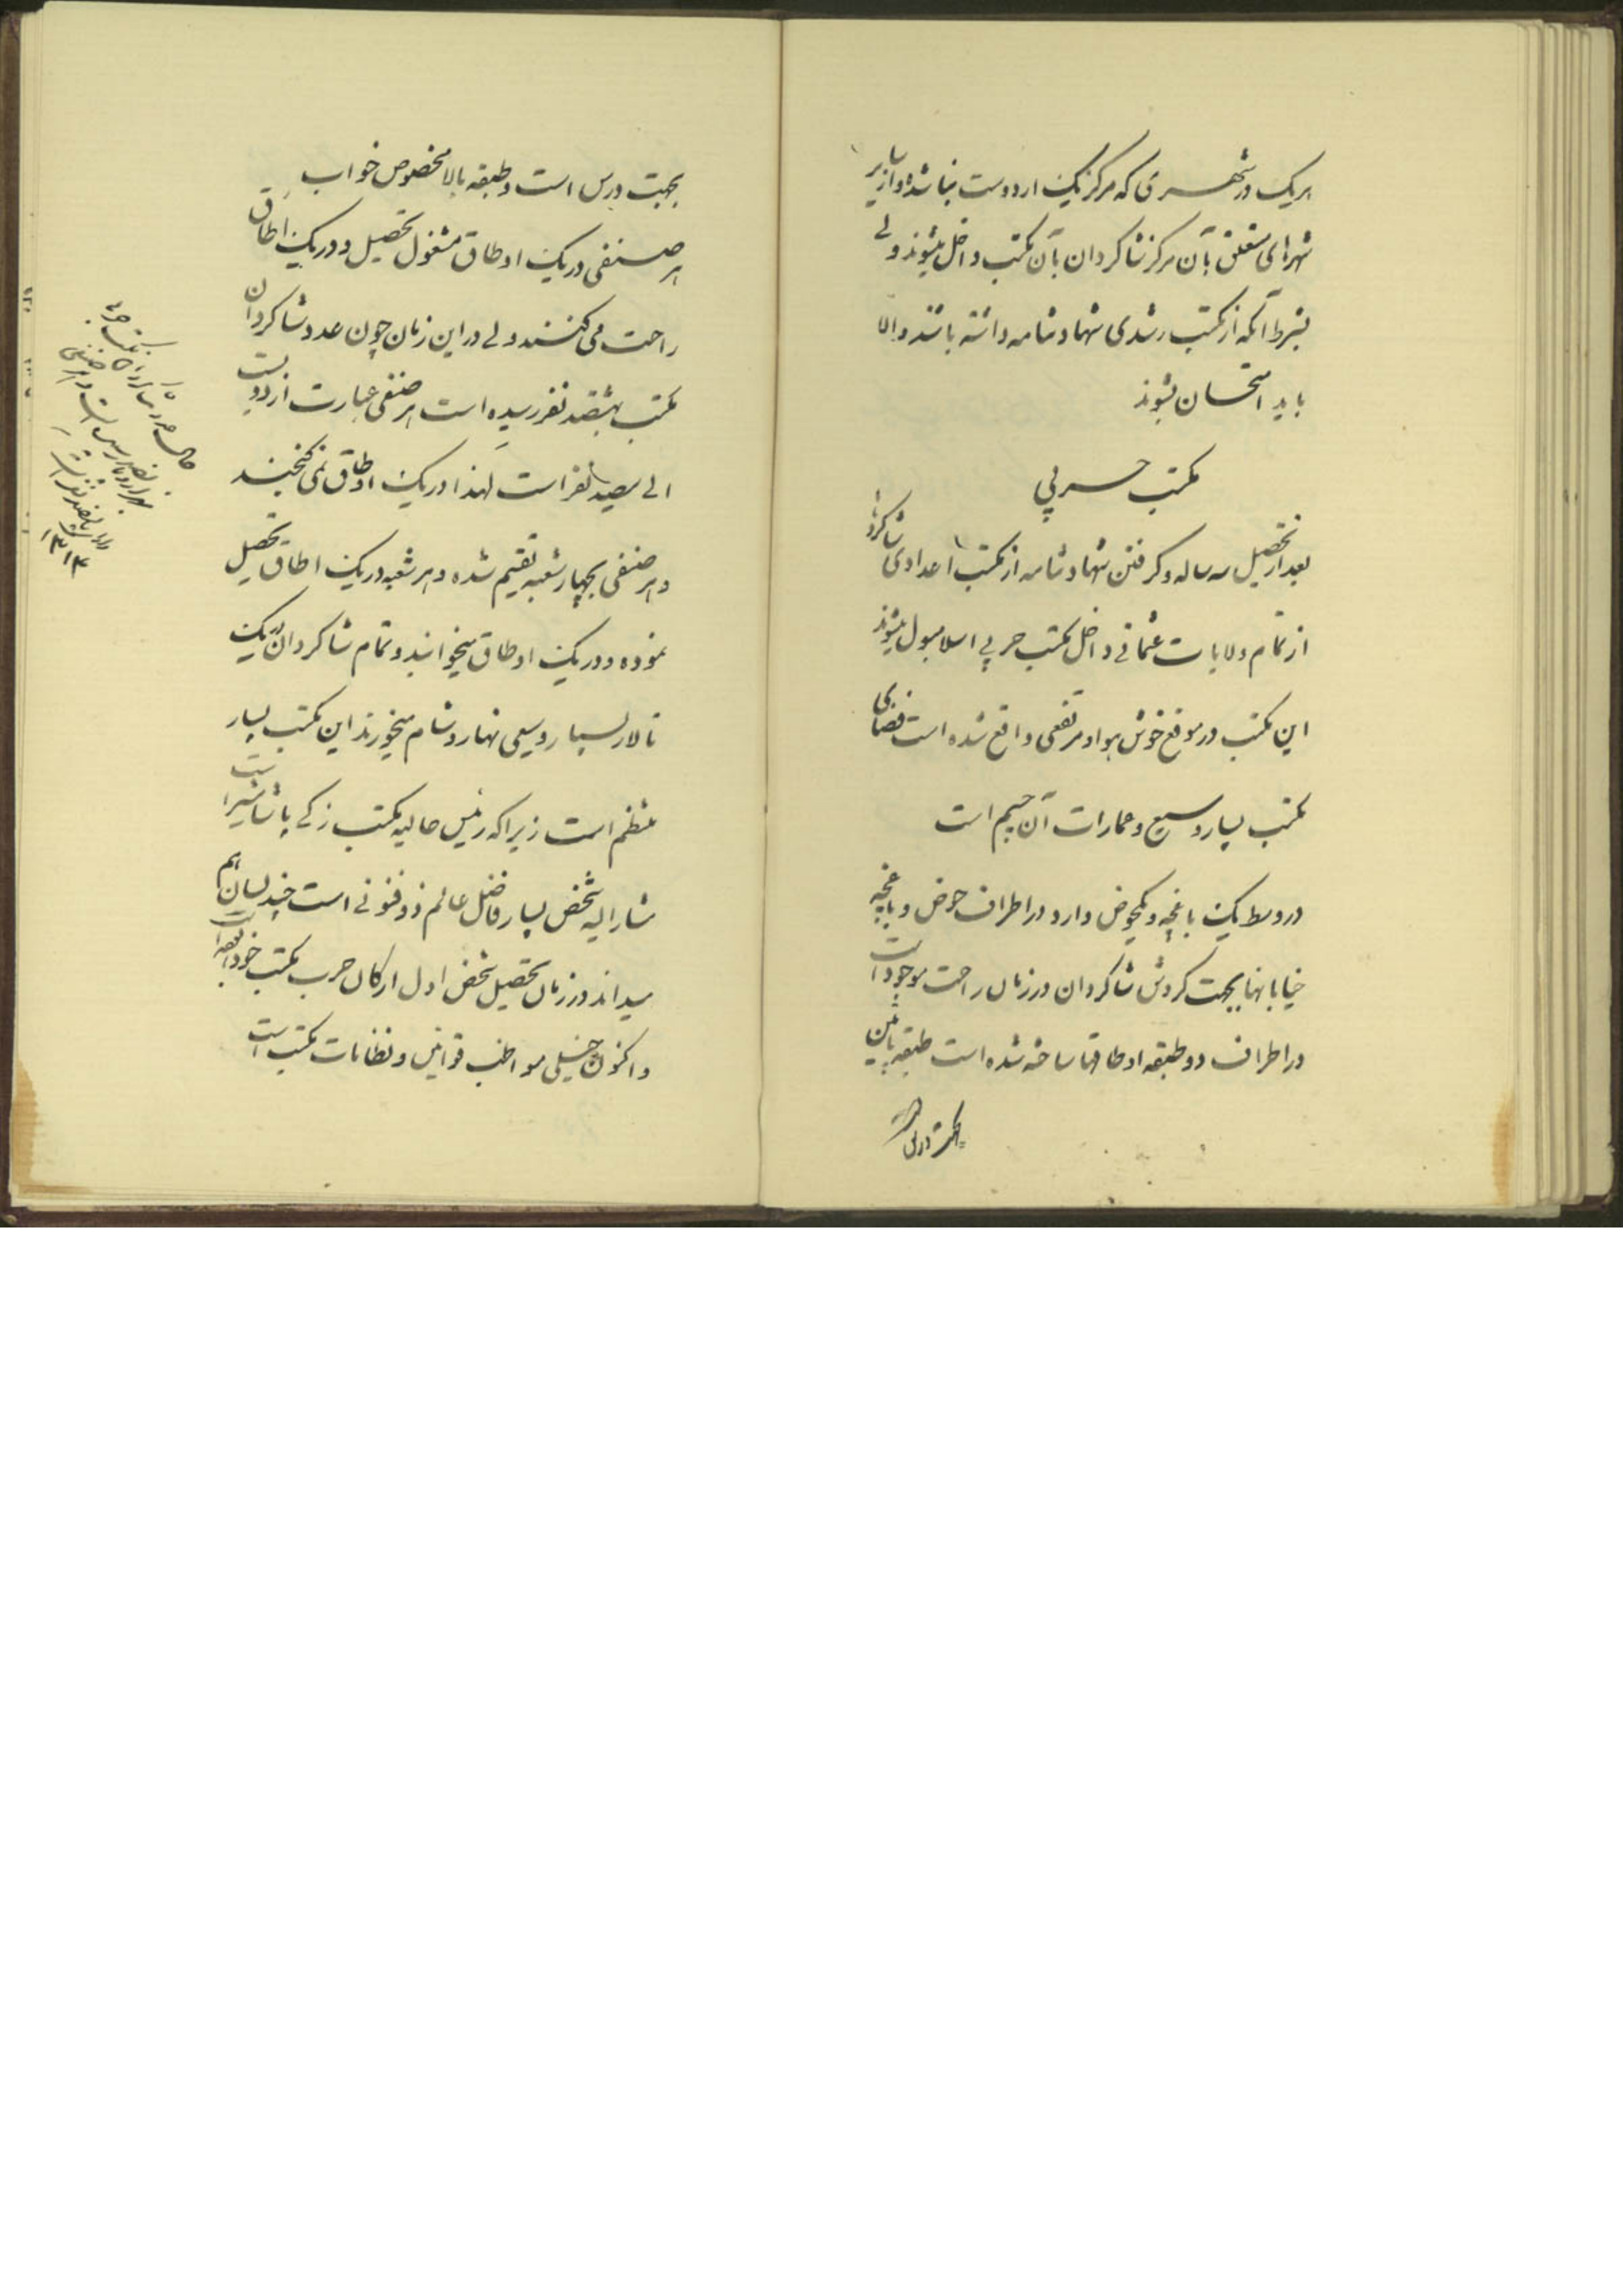 هریک در شهری که مرکز یک اردوست بنا شده و از سایر
شهرهای متعلق بآن مرکز شاکردان بآن مکتب داخل میشوند ولی
بشرط آنکه از مکتب رشدی شهادتنامه داشته باشند والا
باید امتحان بشوند
مکتب حربی
بعد از تحصیل سه ساله و کرفتن شهادتنامه از مکتب اعدادی شاکردها
از تمام ولایات عثمانی داخل مکتب حربی اسلامبول میشوند
این مکتب در موقع خوش هوا و مرتفعی واقع شده است فضای
مکتب بسیار وسیع و عمارات آن جسیم است
در وسط یک باغچه و یکحوض دارد در اطراف حوض و باغچه
خیابانها بجهت کردش شاکردان در زمان راحت موجود است
در اطراف دو طبقه اوطاقها ساخته شده است طبقه پائین
بجهت درس است
بجهت درس است و طبقه بالا مخصوص خواب
هر صنفی در یک اوطاق مشغول تحصیل و در یک اطاق
راحت می کنند ولی در این زمان چون عدد شاکردان
مکتب بهشتصد نفر رسیده است هر صنفی عبارت از دویست
الی سیصد نفر است لهذا در یک اوطاق نمی کنجند
و هر صنفی بچهار شعبه تقسیم شده و هر شعبه در یک اطاق تحصیل
نموده و در یک اوطاق میخوابند و تمام شاکردان در یک
تالار بسیار وسیعی نهار و شام میخورند این مکتب بسیار
منظم است زیرا که رئیس حالیه مکتب زکی پاشا مشیر است
مشارالیه شخص بسیار فاضل عالم ذوفنونی است چند لسان هم
میداند در زمان تحصیل شخص اول ارکان حرب مکتب خود بوده است
و اکنون خیلی مواظب قوانین و نظامات مکتب است
حال عدد شاکردان مکتب حربیه
۱۳۱۴